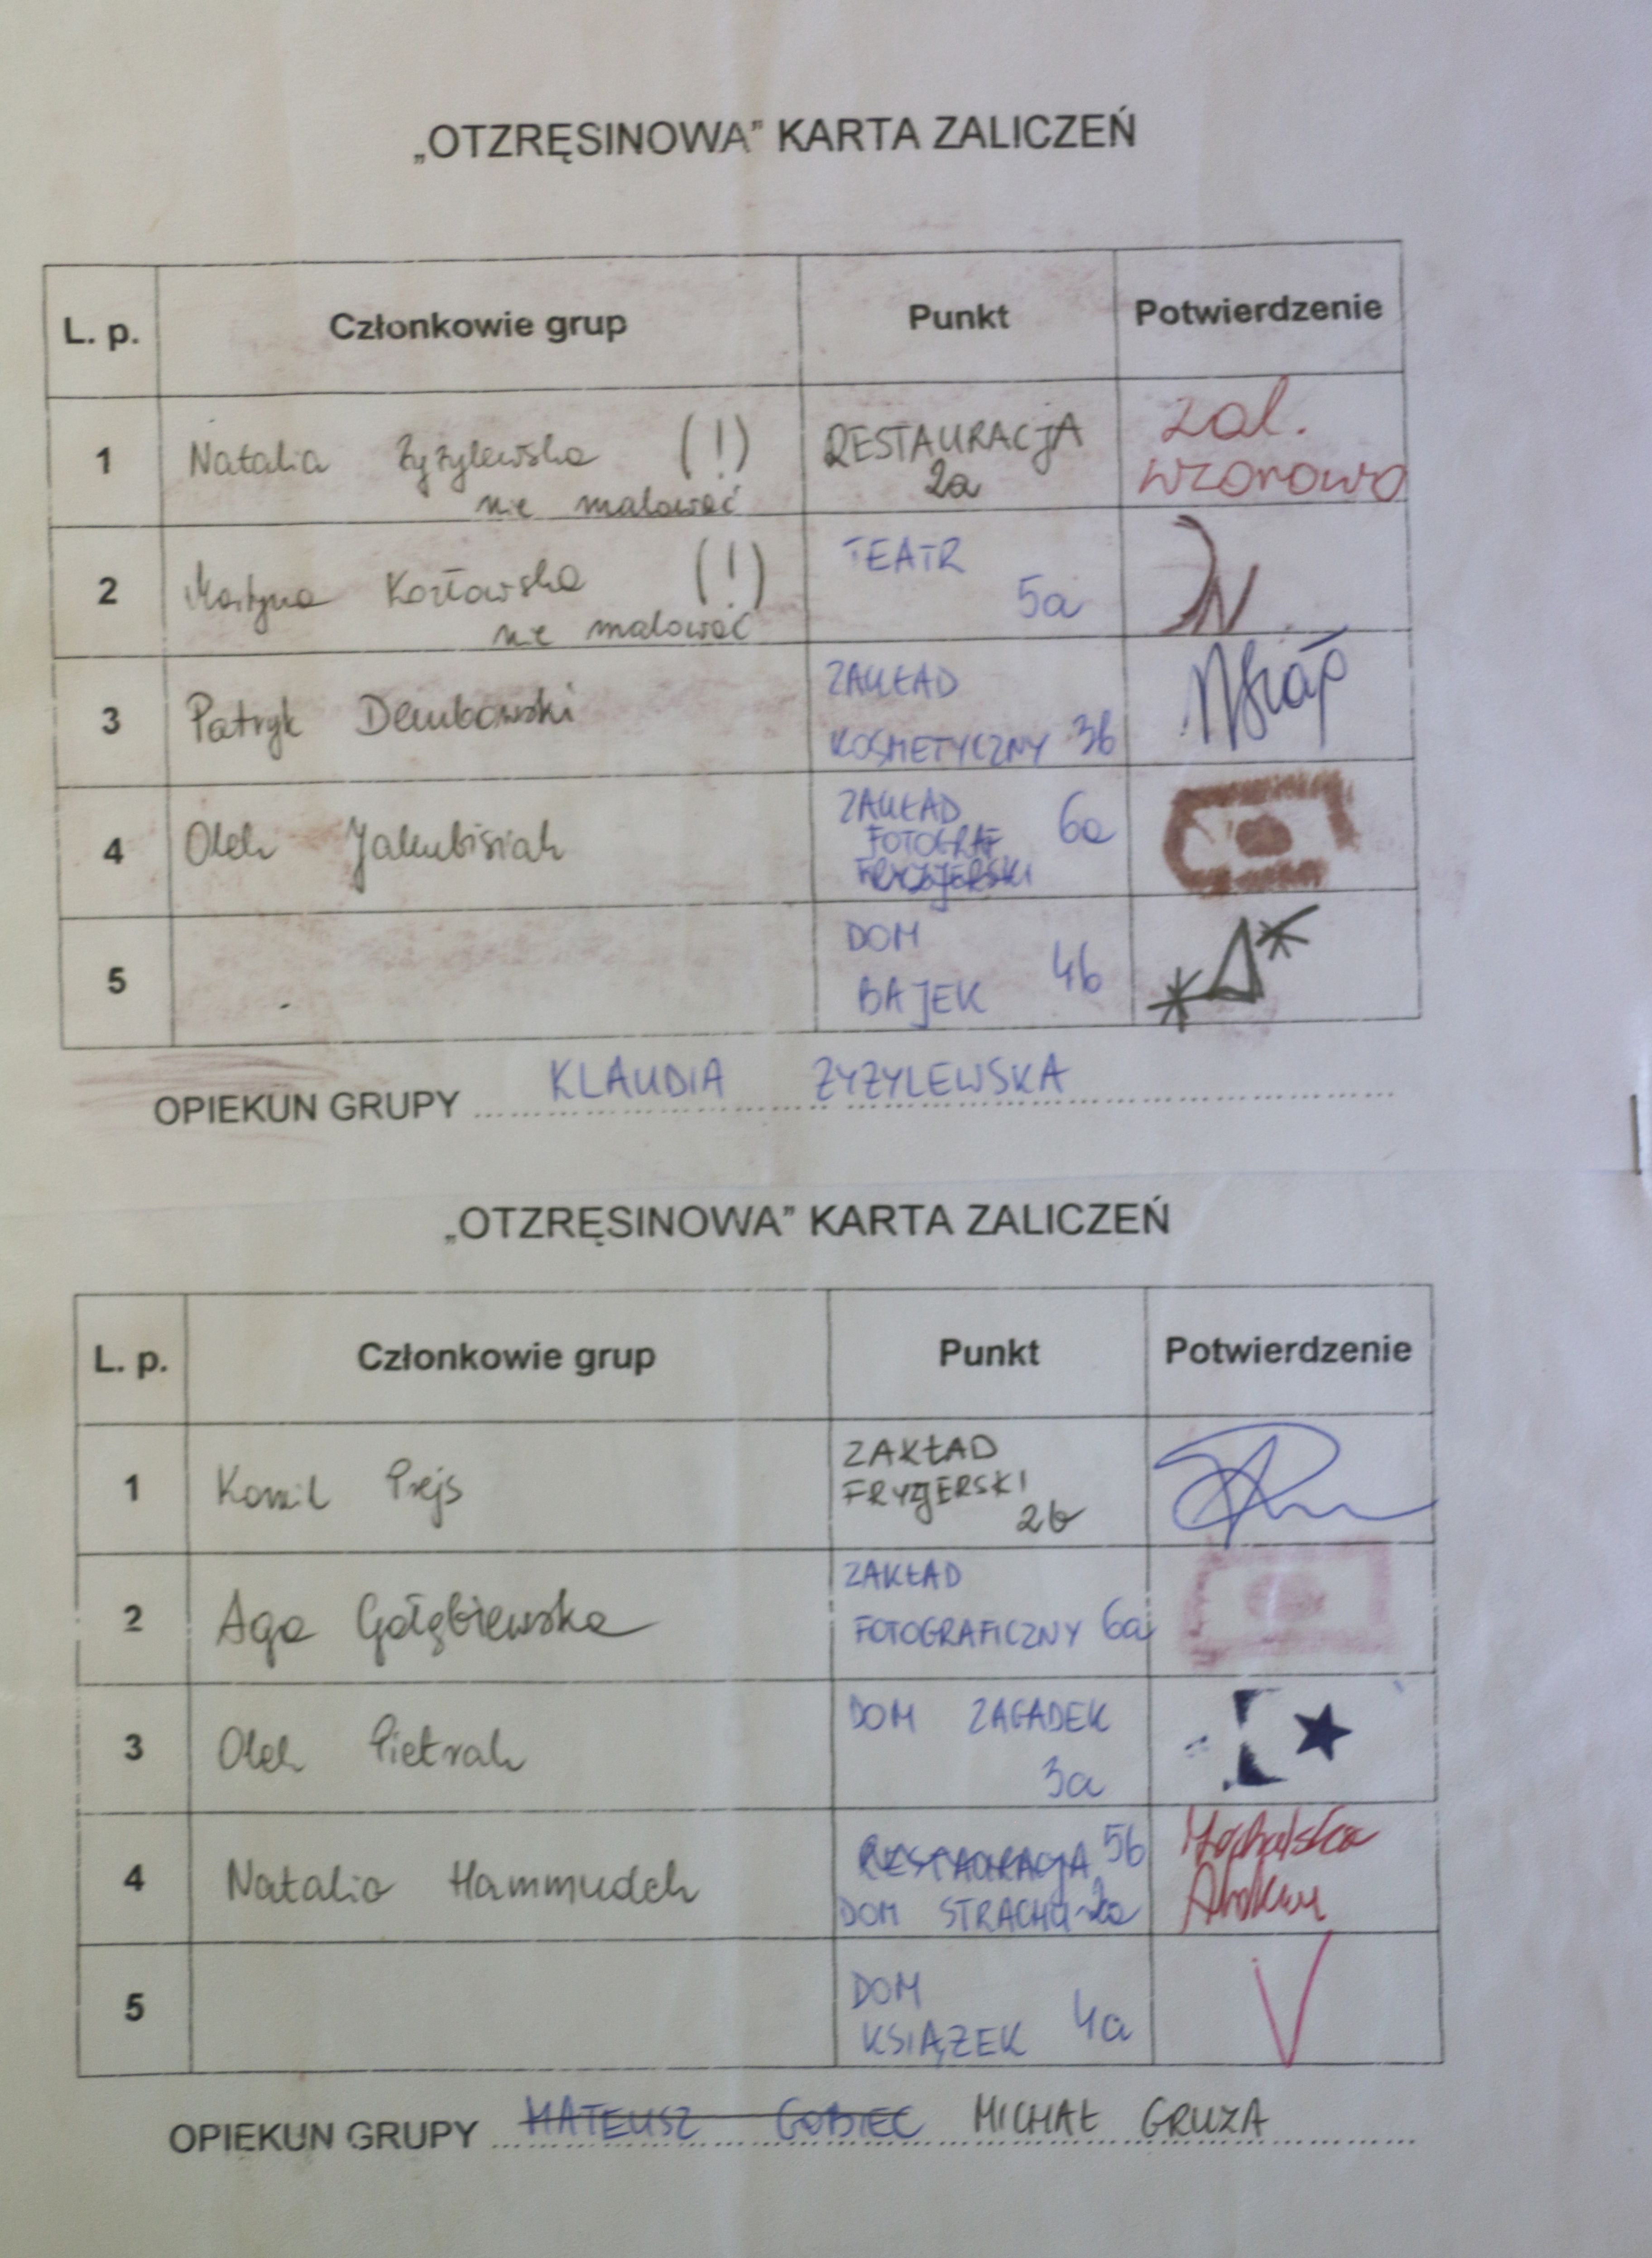 „OTZRĘSINOWA” KARTA ZALICZEŃ
L. p. Członkowie grup Punkt Potwierdzenie
1 Natalia Żyżylewska (!) RESTAURACJA zal.
nie malować 2a wzorowo
2 Martyna Kozłowska (!) TEATR
nie malować 5a
3 Patryk Dembowski ZAKŁAD
KOSMETYCZNY 3b
4 Olek Jakubisiak ZAKŁAD 6a
FOTOGRAF
FRYZJERSKI
5 DOM
BAJEK 4b
OPIEKUN GRUPY KLAUDIA ŻYŻYLEWSKA
„OTZRĘSINOWA” KARTA ZALICZEŃ
L. p. Członkowie grup Punkt Potwierdzenie
1 Kamil Prejs ZAKŁAD
FRYZJERSKI
2b
2 Aga Gołębiewska ZAKŁAD
FOTOGRAFICZNY 6a
3 Olek Pietrak DOM ZAGADEK
3a
4 Natalia Hammudeh RESTAURACJA 5b
DOM STRACHU 2a
5 DOM
KSIĄŻEK 4a
OPIEKUN GRUPY MATEUSZ GOBIEC MICHAŁ GRUZA